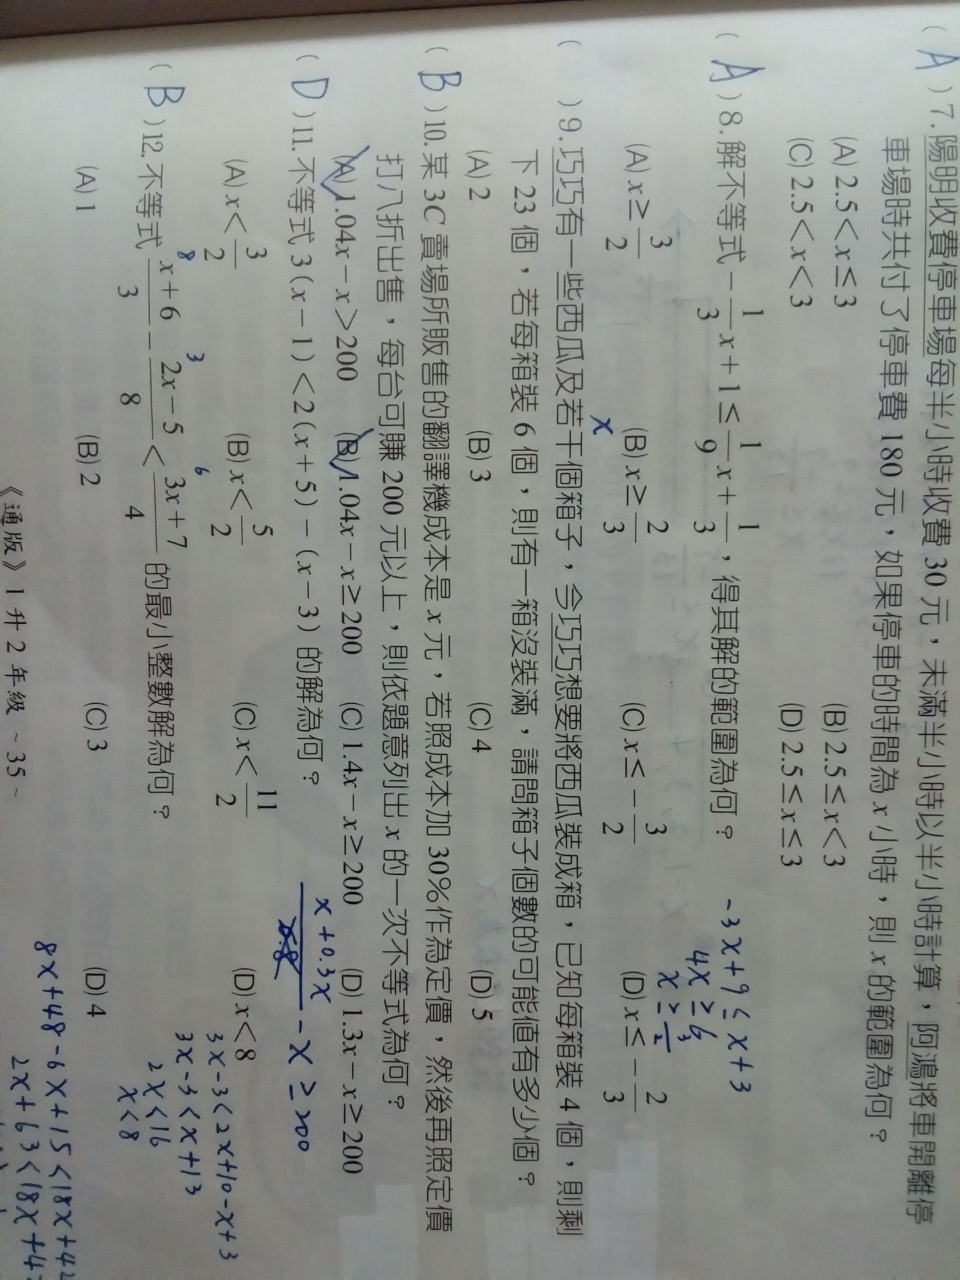 ( A ) 7. 陽明收費停車場每半小時收費 30 元，未滿半小時以半小時計算，阿鴻將車開離停
車場時共付了停車費 180 元，如果停車的時間為 x 小時，則 x 的範圍為何？
(A) 2.5<x≤3 (B) 2.5≤x<3
(C) 2.5<x<3 (D) 2.5≤x≤3
( A ) 8. 解不等式 -1/3 x+1≤1/9 x+1/3，得其解的範圍為何？
-3x+9≤x+3
4x≥6
x≥3/2
(A) x≥3/2 (B) x≥2/3 (C) x≤-3/2 (D) x≤-2/3
x
( ) 9. 巧巧有一些西瓜及若干個箱子，今巧巧想要將西瓜裝成箱，已知每箱裝 4 個，則剩
下 23 個，若每箱裝 6 個，則有一箱沒裝滿，請問箱子個數的可能值有多少個？
(A) 2 (B) 3 (C) 4 (D) 5
( B ) 10. 某 3C 賣場所販售的翻譯機成本是 x 元，若照成本加 30%作為定價，然後再照定價
打八折出售，每台可賺 200 元以上，則依題意列出 x 的一次不等式為何？
(A) 1.04x-x>200 (B) 1.04x-x≥200 (C) 1.4x-x≥200 (D) 1.3x-x≥200
x+0.3x
0.8
-x≥200
( D ) 11. 不等式 3(x-1)<2(x+5)-(x-3) 的解為何？
(A) x<3/2 (B) x<5/2 (C) x<11/2 (D) x<8
3x-3<2x+10-x+3
3x-3<x+13
2x<16
x<8
( B ) 12. 不等式 (x+6)/3-(2x-5)/8<(3x+7)/4 的最小整數解為何？
8 3 6
(A) 1 (B) 2 (C) 3 (D) 4
8x+48-6x+15<18x+42
2x+63<18x+4
《通版》1 升 2 年級 ~ 35 ~